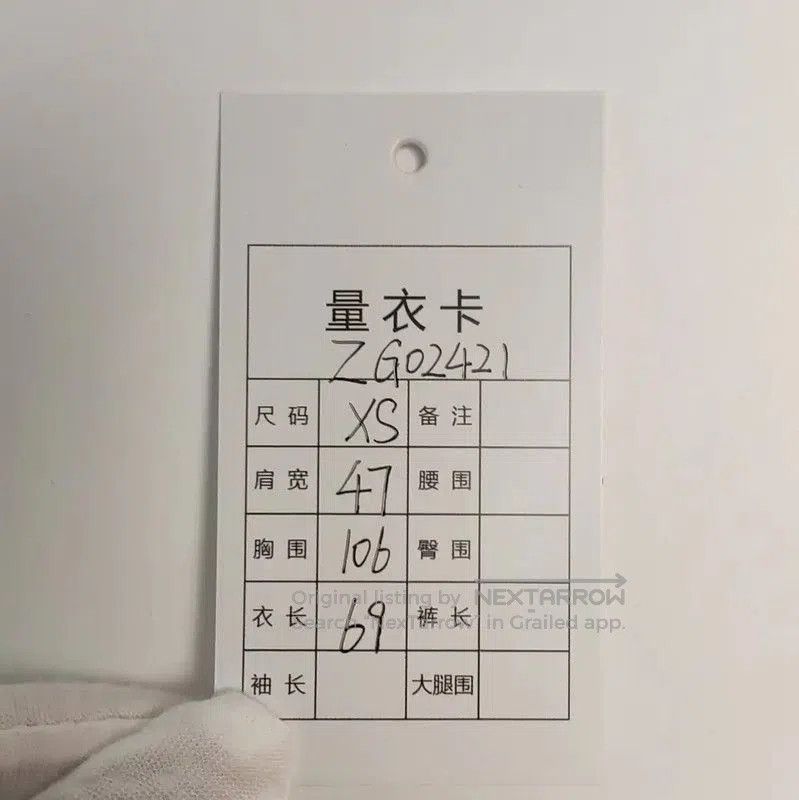 量衣卡
ZG02421
尺码 XS 备注
肩宽 47 腰围
胸围 106 臀围
Original listing by NEXTARROW
衣长 69 裤长
Search "NexTarrow" in Grailed app.
袖长 大腿围